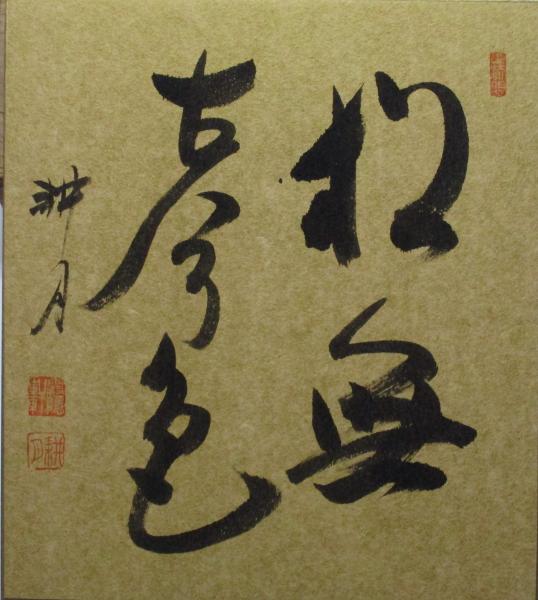 松無
古今色
耕月